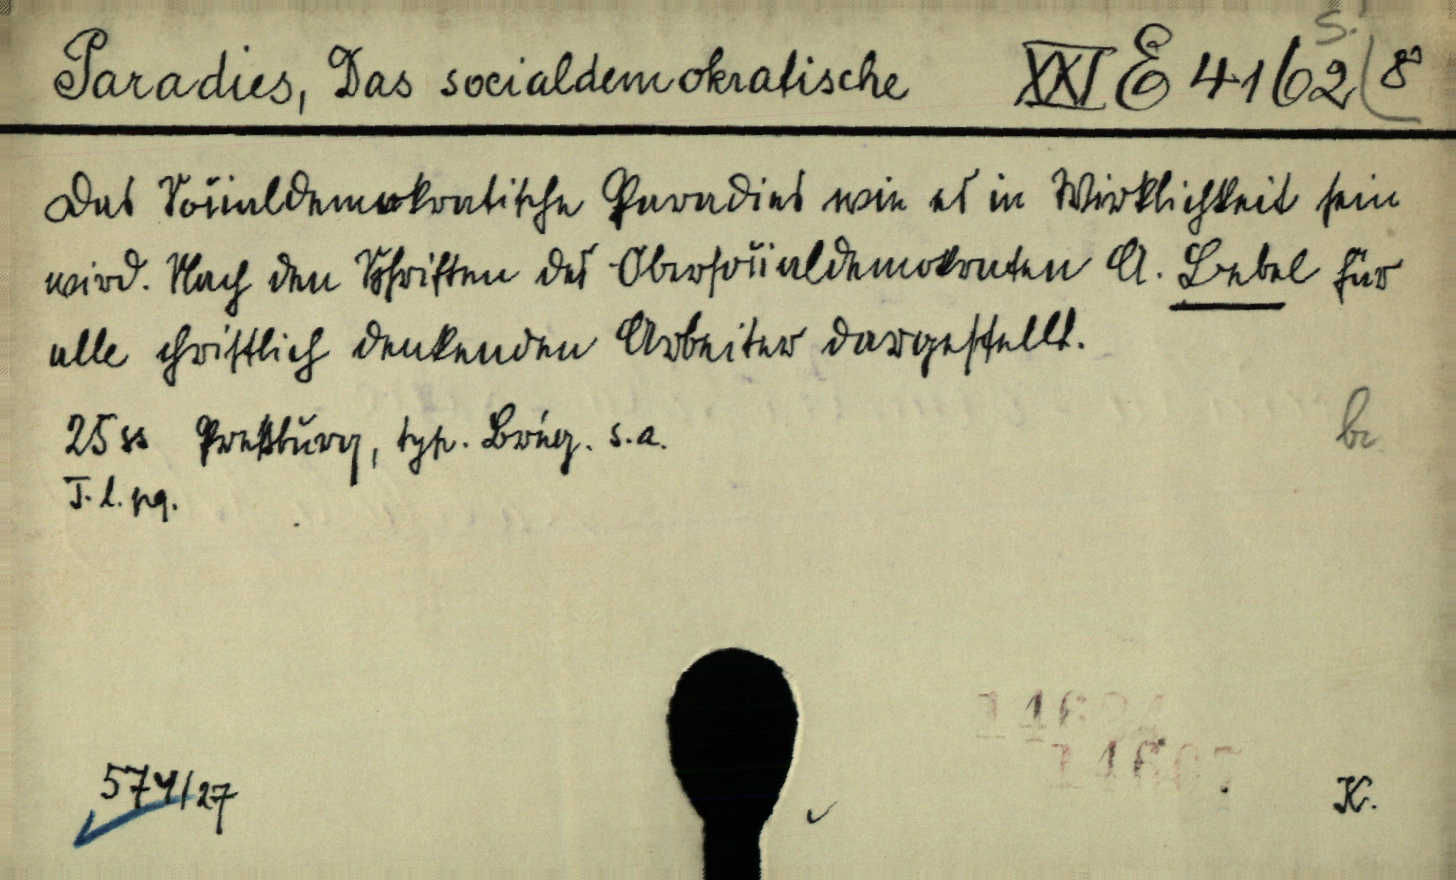 Paradies, Das socialdemokratische XXI E 4162 8°
S.
Das Socialdemokratische Paradies wie es in Wirklichkeit sein
wird. Nach den Schriften des Obersocialdemokraten A. Bebel für
alle christlich denkenden Arbeiter dargestellt.
25 ss Preßburg, typ. Brüg. s.a.
T. l. pg.
574/27
K.